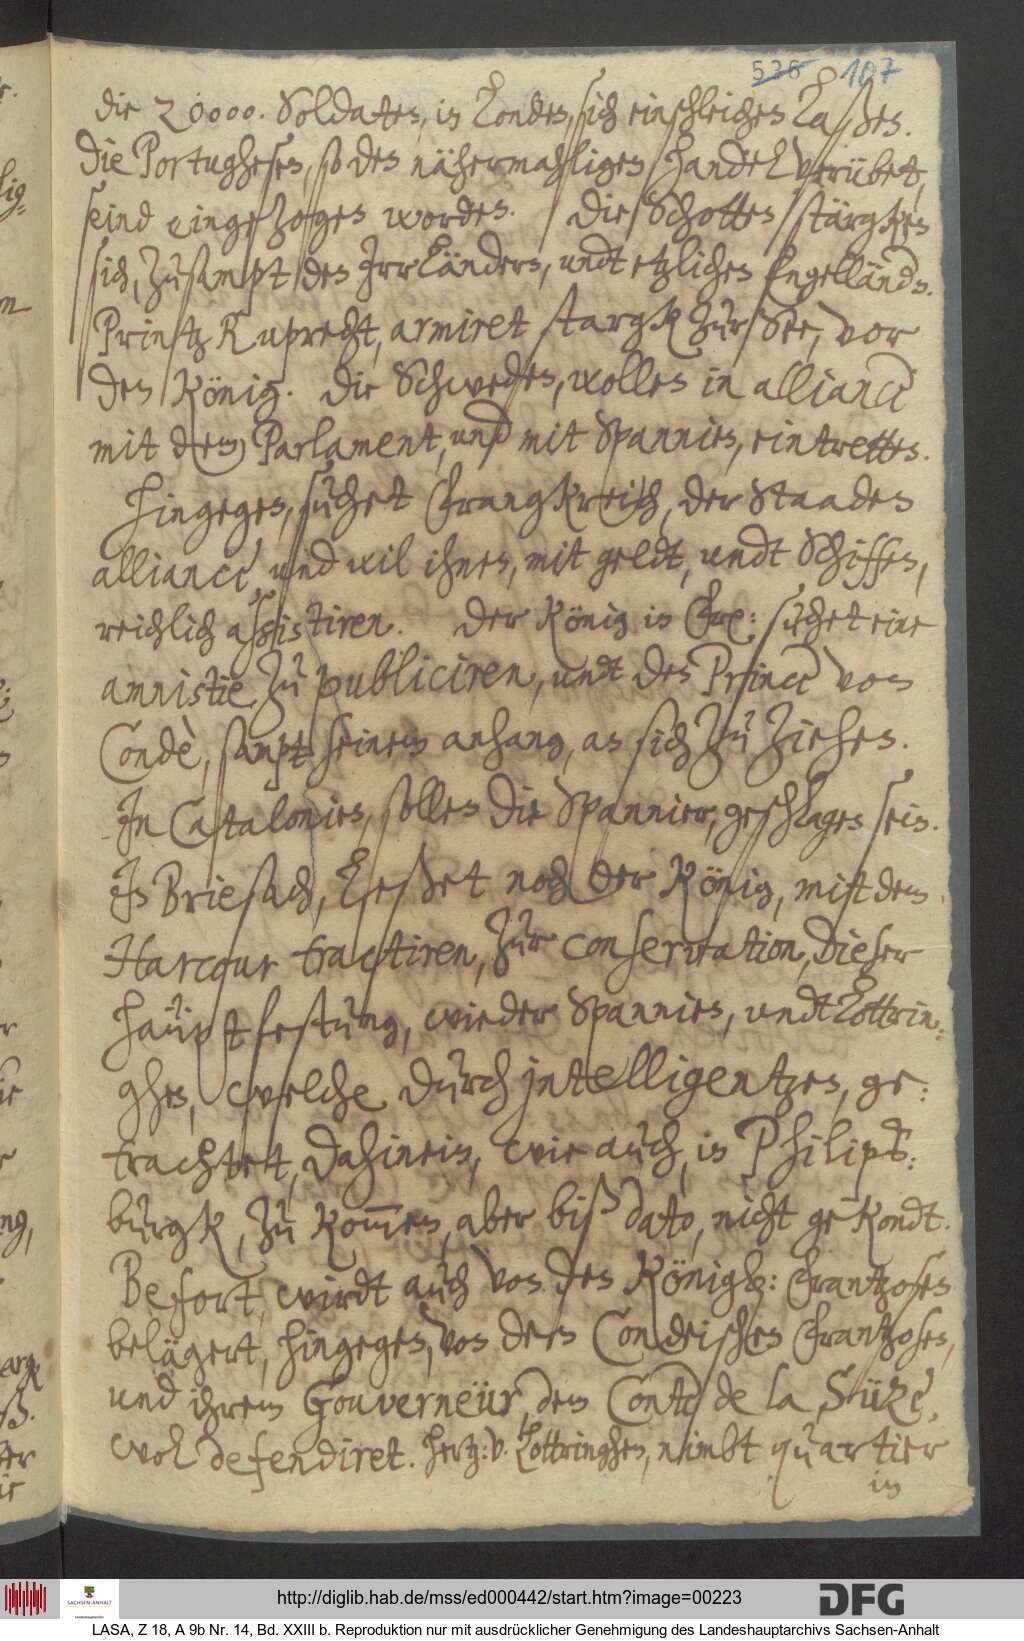 538 107
die 20000. Soldaten, in Londen, sich einschleichen laßen.
Die Portughesen, so den nähermahligen handel verübet,
seind eingezogen worden. Die Schotten stärgken
sich, zusampt den Irrländern, undt etzlichen Engelländ.
Printz Ruprecht, armiret stargk zur See, vor
den König. Die Schweden, wollen in alliance
mit dem Parlament, und mit Spannien, eintretten.
Hingegen, suchet Frangkreich, der Staaden
alliance, und will ihnen, mit geldt, undt Schiffen,
reichlich assistiren. Der König in suchet eine
amnistie zu publiciren, undt den Prince von
Condè, sampt seinem anhang, an sich zu ziehen.
In Catalonien, sollen die Spannier, geschlagen sein.
In Briesach, leßet noch der König, mit dem
Harcour tractiren, zur conservation, dieser
hauptfestung, wieder Spannien, undt Lottrin-
ghen, welche durch intelligentzen, ge-
trachtet, dahinein, wie auch, in Philips-
burgk, zu kommen, aber biß dato, nicht gekondt.
Befort, wirdt auch von den Königl: Frantzosen
belägert, hingegen, von den Condeischen Frantzosen,
und ihrem Gouverneur, dem Conte de la Süze,
wol defendiret. Hertz: v. Lottringhen, nimbt quartier
in
http://diglib.hab.de/mss/ed000442/start.htm?image=00223
DFG
SACHSEN-ANHALT
Landeshauptarchiv
LASA, Z 18, A 9b Nr. 14, Bd. XXIII b. Reproduktion nur mit ausdrücklicher Genehmigung des Landeshauptarchivs Sachsen-Anhalt